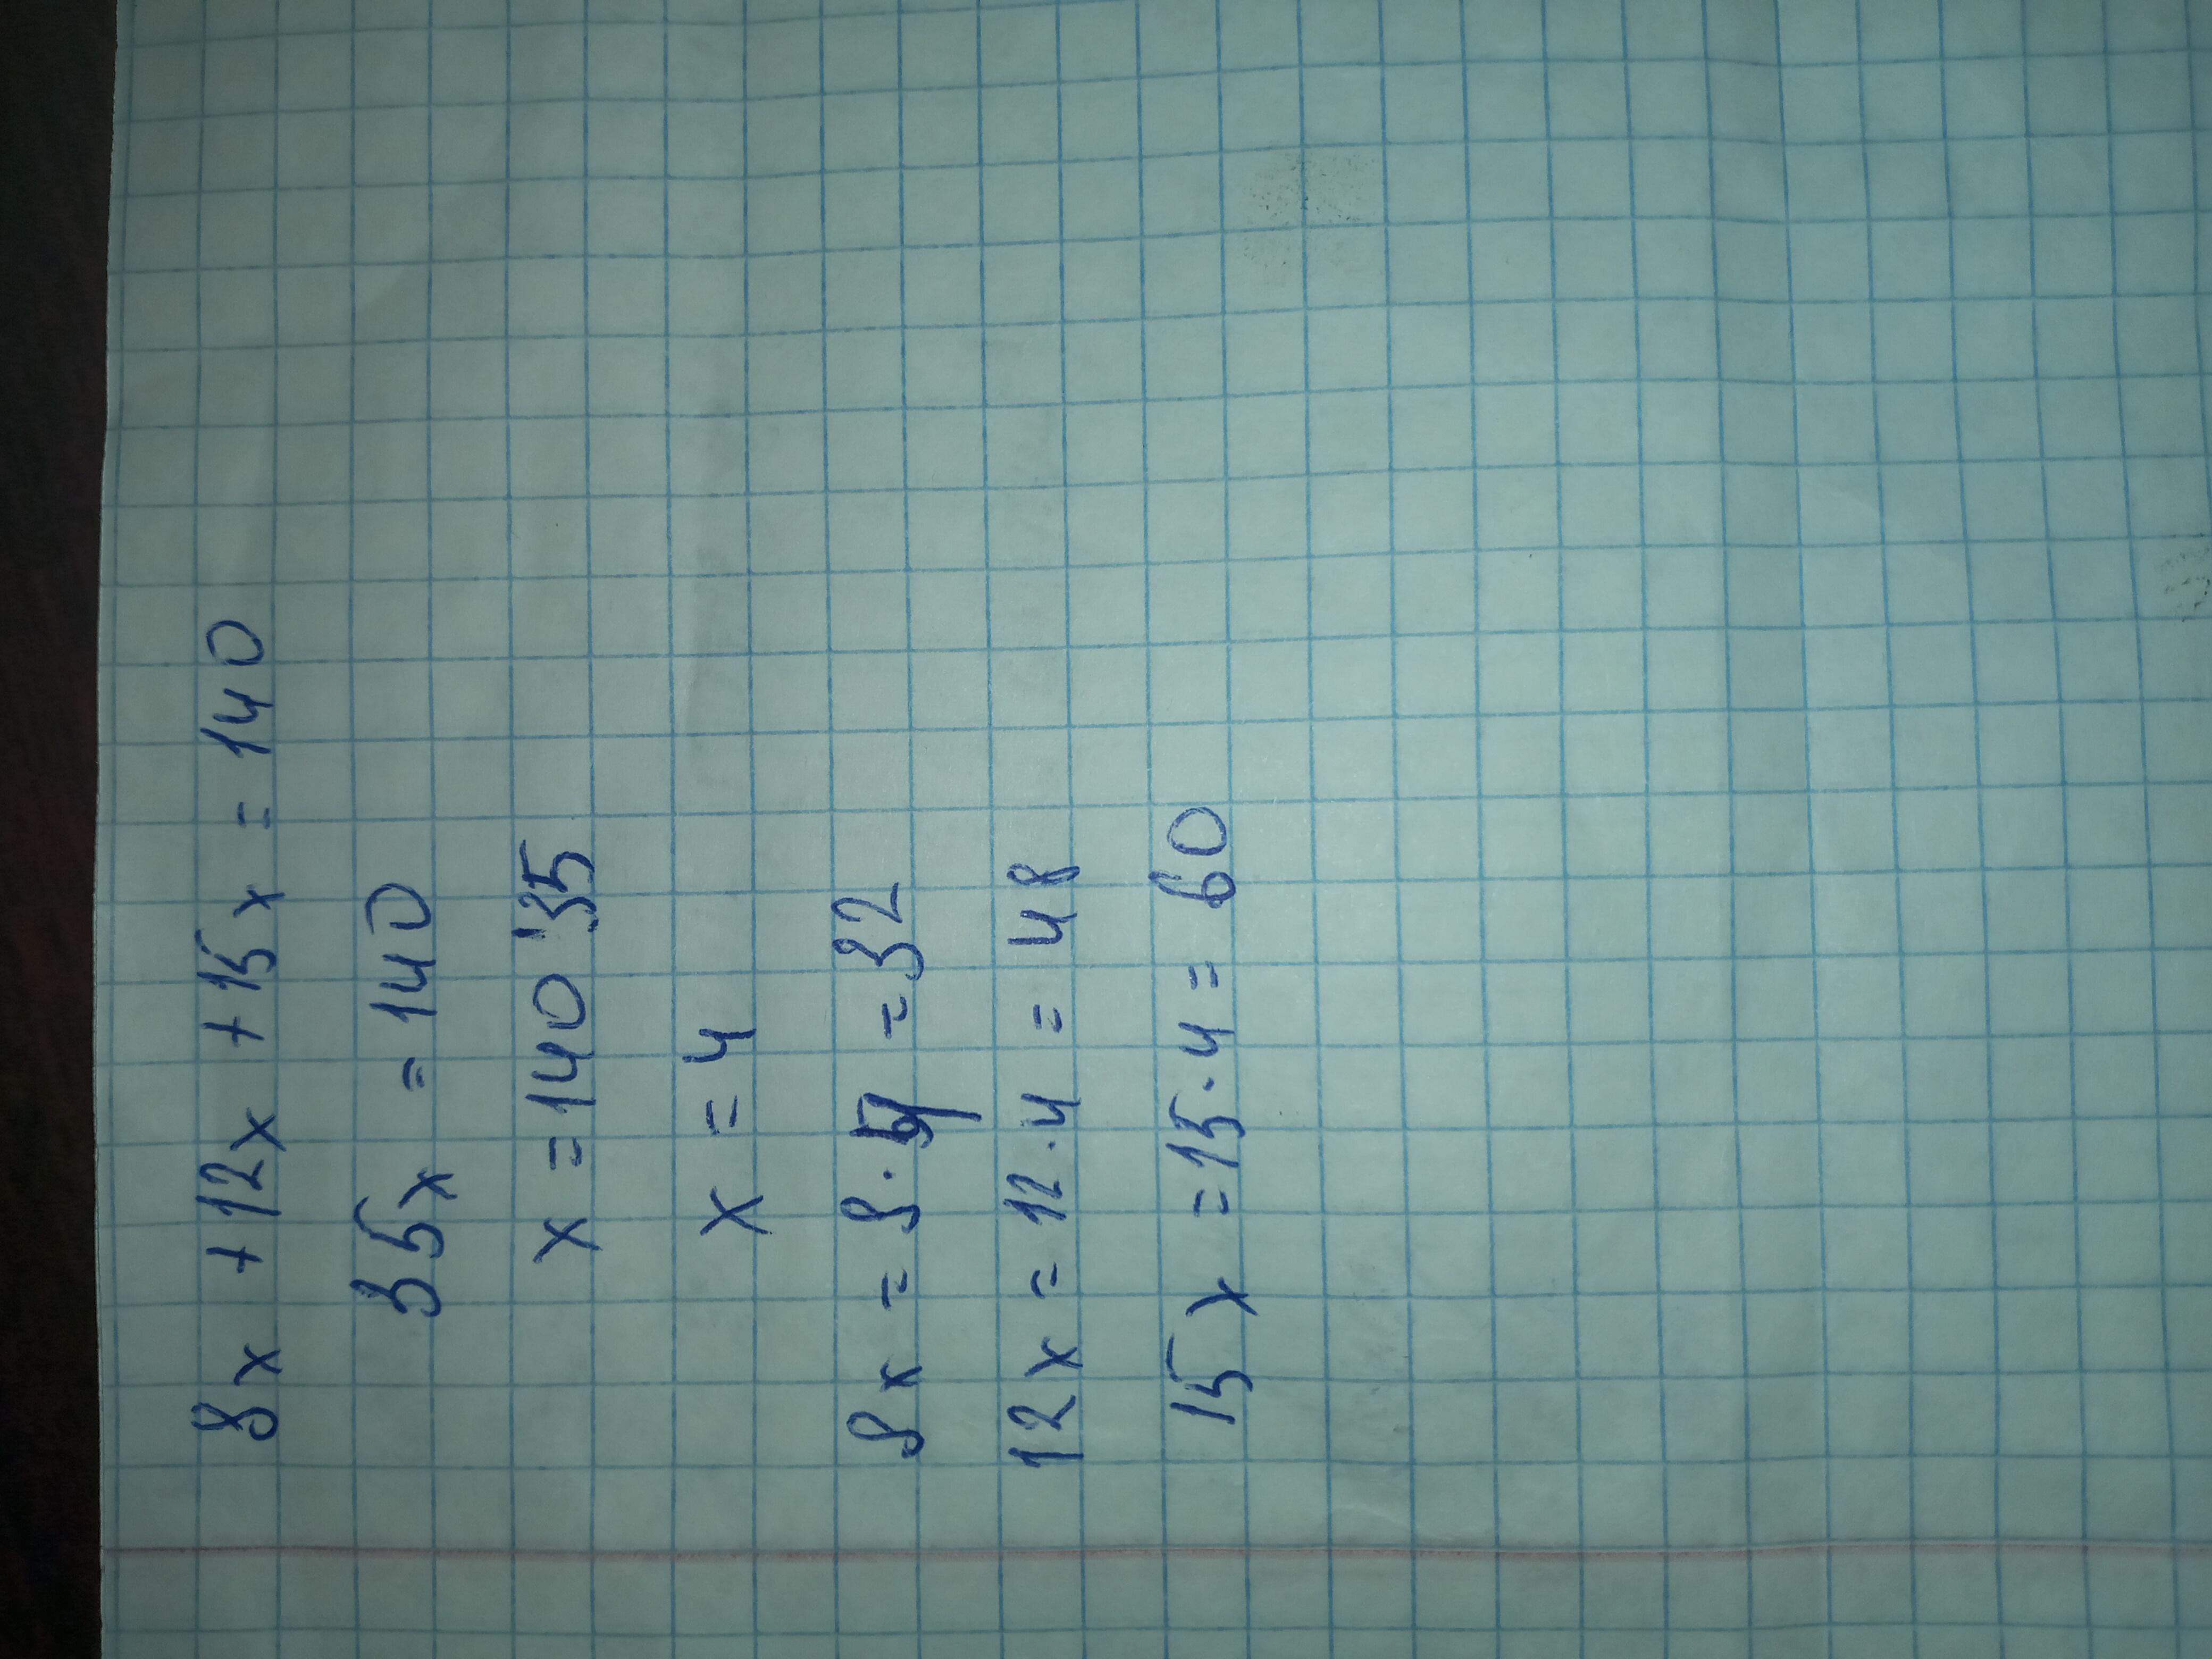 8x + 12x + 15x = 140
35x = 140
x = 140 : 35
x = 4
8x = 8 · 4 = 32
12x = 12 · 4 = 48
15x = 15 · 4 = 60